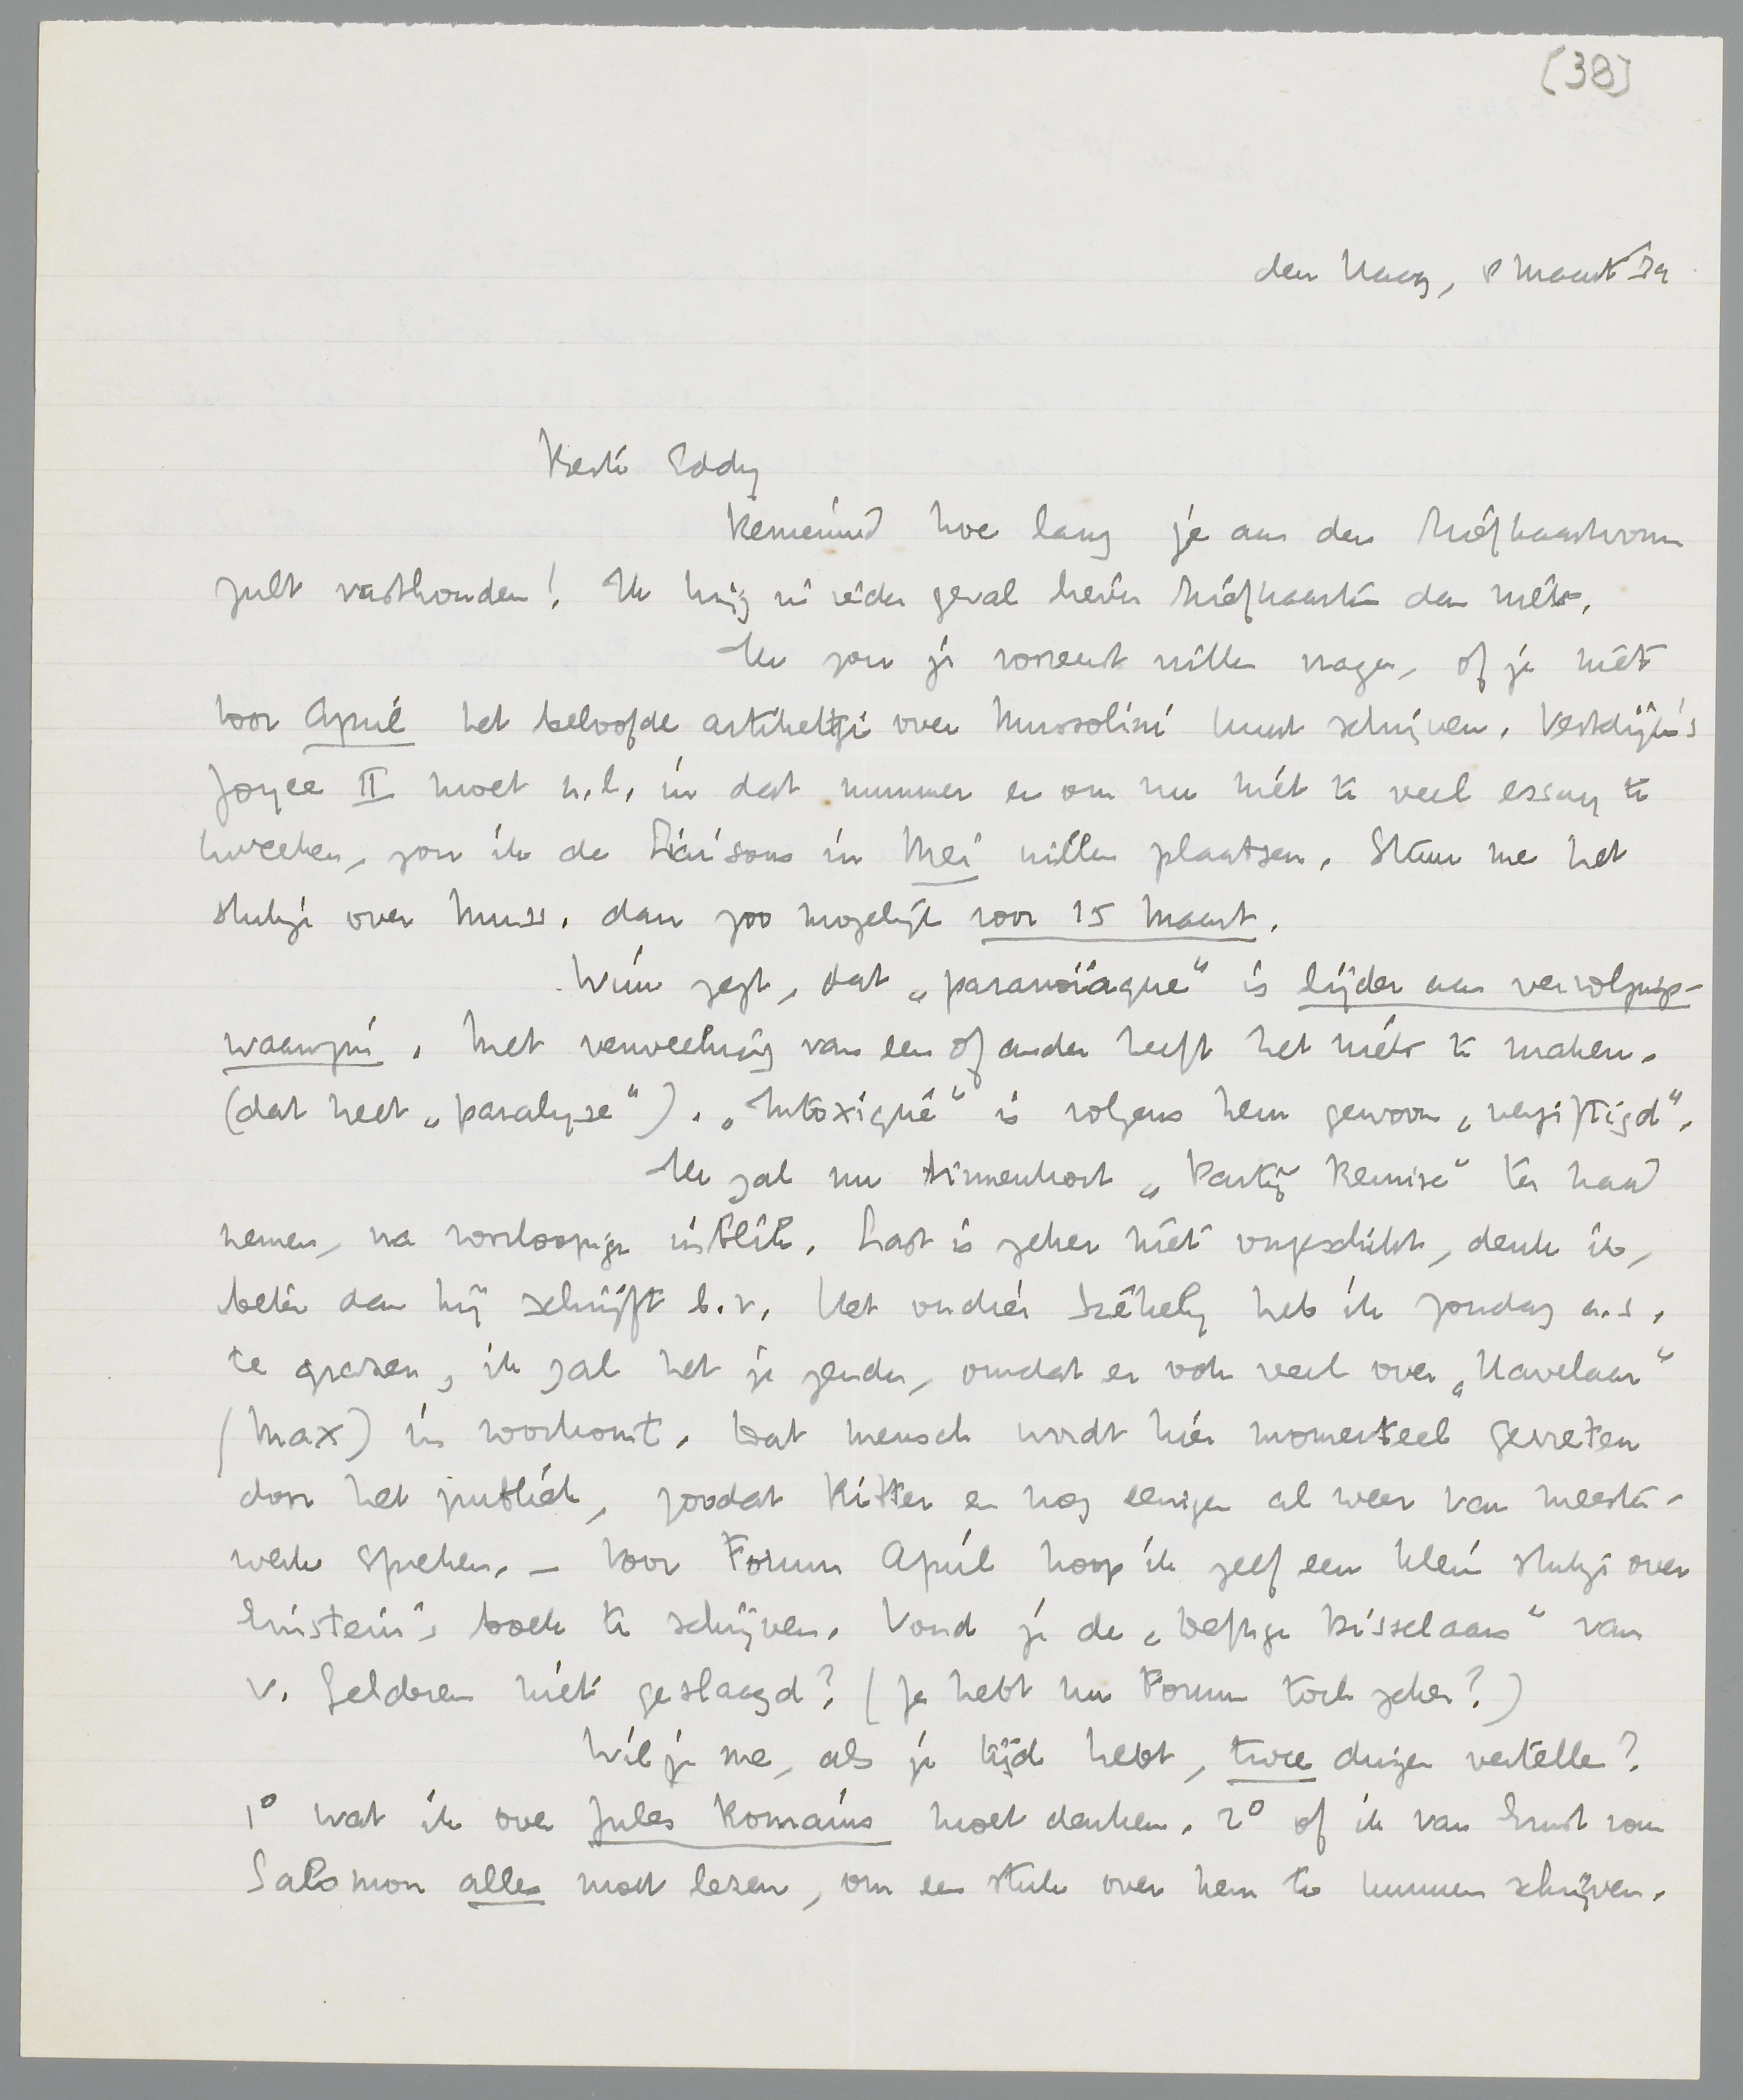 [38]
den Haag, 8 Maart '34
Beste Eddy
Benieuwd hoe lang je aan den briefkaartvorm
zult vasthouden! Ik krijg in ieder geval liever briefkaarten dan niets.
Ik zou je vooreerst willen vragen, of je niet
voor April het beloofde artikeltje over Mussolini kunt schrijven. Vestdijk's
Joyce II moet n.l. in dat nummer en om nu niet te veel essay te
kweeken, zou ik de Liaisons in Mei willen plaatsen. Stuur me het
stukje over Muss. dan zoo mogelijk voor 15 Maart.
Wim zegt, dat „paranoïaque" is lijder aan vervolgings-
waanzin. Met verweeking van een of ander heeft het niets te maken.
(dat heet „paralyse"). „Intoxiqué" is volgens hem gewoon „vergiftigd".
Ik zal nu binnenkort „Partij Remise" ter hand
nemen, na voorloopige inblik. Last is zeker niet ongeschikt, denk ik,
beter dan hij schrijft b.v. Het ondier Székely heb ik zondag a.s.
te grazen, ik zal het je zenden, omdat er ook veel over „Havelaar"
(Max) in voorkomt. Dat mensch wordt hier momenteel gevreten
door het publiek, zoodat Ritter en nog eenigen al weer van meester-
werk spreken. – Voor Forum April hoop ik zelf een klein stukje over
Einstein's boek te schrijven. Vond je de „Deftige Disselaars" van
v. Gelderen niet geslaagd? (Je hebt nu Forum toch zeker?)
Wil je me, als je tijd hebt, twee dingen vertellen?
1° wat ik over Jules Romains moet denken. 2° of ik van Ernst von
Salomon alles moet lezen, om een stuk over hem te kunnen schrijven.